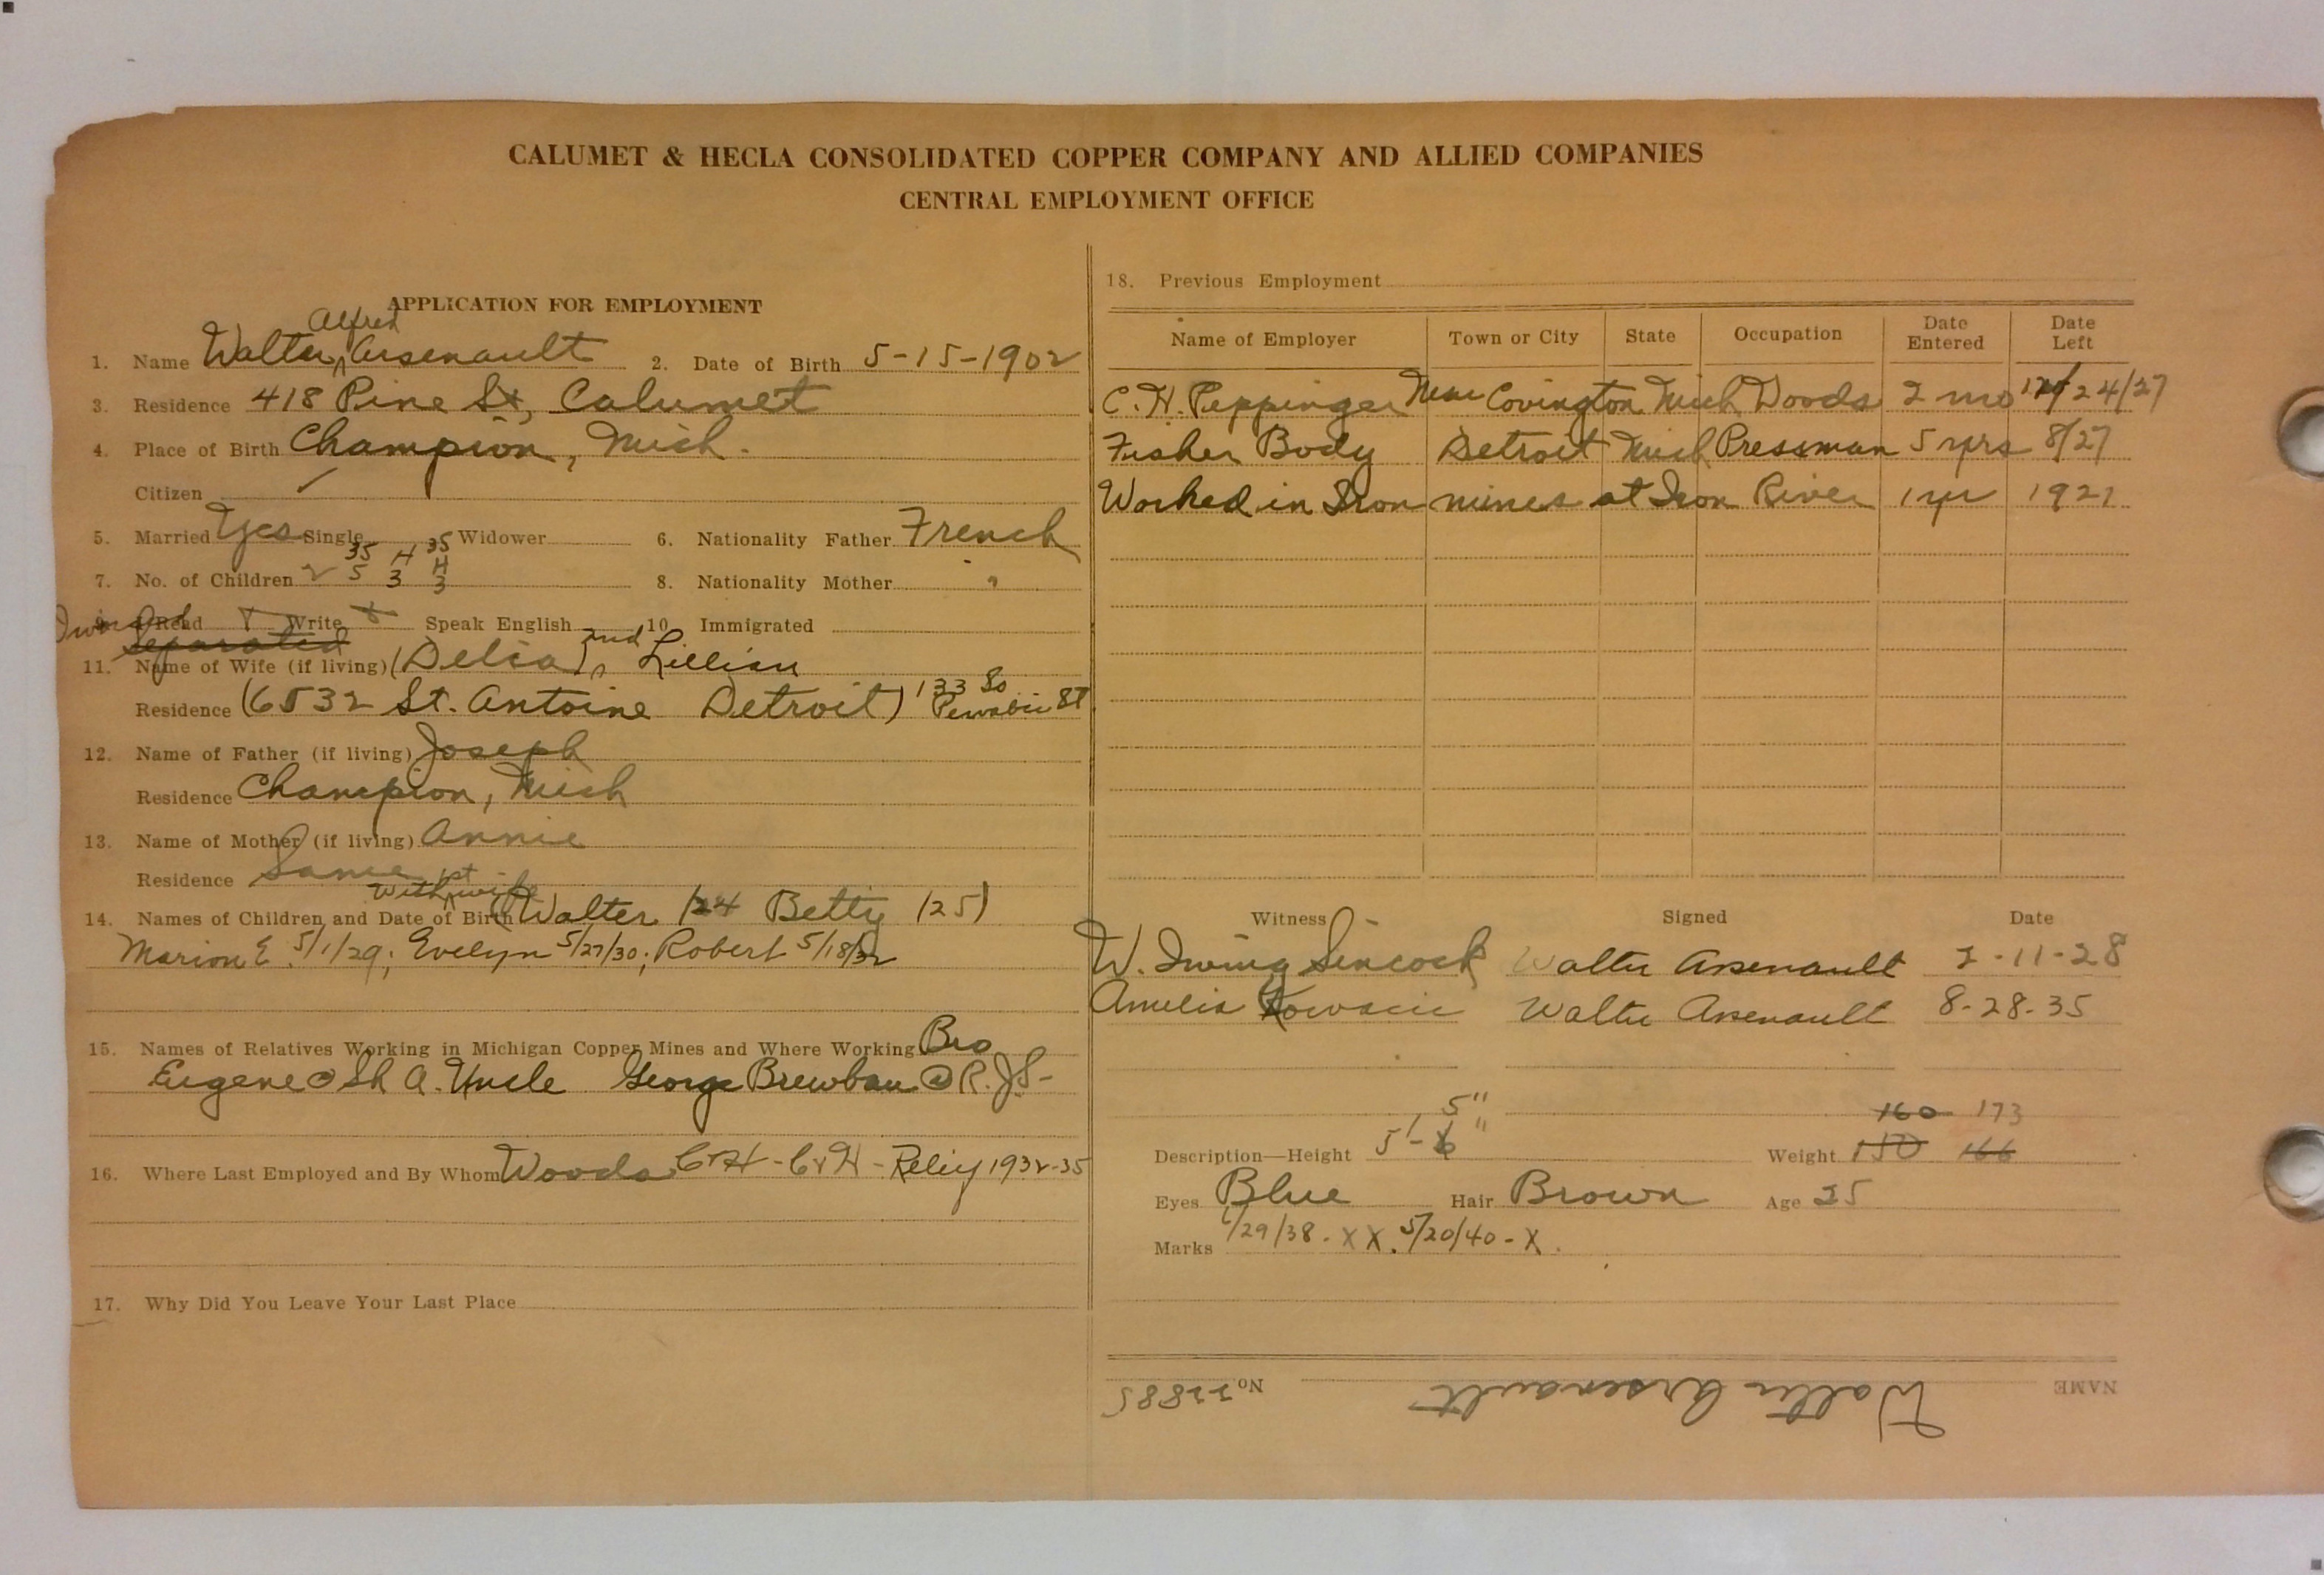 CALUMET & HECLA CONSOLIDATED COPPER COMPANY AND ALLIED COMPANIES
CENTRAL EMPLOYMENT OFFICE
APPLICATION FOR EMPLOYMENT
Alfred
1. Name Walter Arsenault 2. Date of Birth 5-15-1902
3. Residence 418 Pine St, Calumet
4. Place of Birth Champion, Mich.
Citizen ✓
5. Married Yes Single Widower 6. Nationality Father French
35 H 35
7. No. of Children 2 5 3 H 3 8. Nationality Mother "
9. Read Write Speak English 10 Immigrated
Divorced
Separated
11. Name of Wife (if living) (Delia) 2nd Lillian
Residence (6532 St. Antoine Detroit) 133 So Pewabic St
12. Name of Father (if living) Joseph
Residence Champion, Mich
13. Name of Mother (if living) Annie
Residence Same
With 1st wife
14. Names of Children and Date of Birth (Walter /24 Betty /25)
Marion E. 5/1/29; Evelyn 5/27/30; Robert 5/18/32
15. Names of Relatives Working in Michigan Copper Mines and Where Working Bro
Eugene @ Sh A. Uncle George @ R. J S-
16. Where Last Employed and By Whom Woods C&H - C&H - Relief 1932-35
17. Why Did You Leave Your Last Place
18. Previous Employment
Name of Employer Town or City State Occupation Date Entered Date Left
C. H. Peppinger Near Covington Mich Woods 2 mo 12/24/27
Fisher Body Detroit Mich Pressman 5 yrs 8/27
Worked in Iron mines at Iron River 1 yr 1922
Witness Signed Date
W. Irving Sincock Walter Arsenault 2-11-28
Amelia Walter Arsenault 8-28-35
5" 160 173
Description—Height 5'-6" Weight 150 166
Eyes Blue Hair Brown Age 25
Marks 6/29/38 - X X. 5/20/40 - X.
NAME Walter Arsenault No 22885